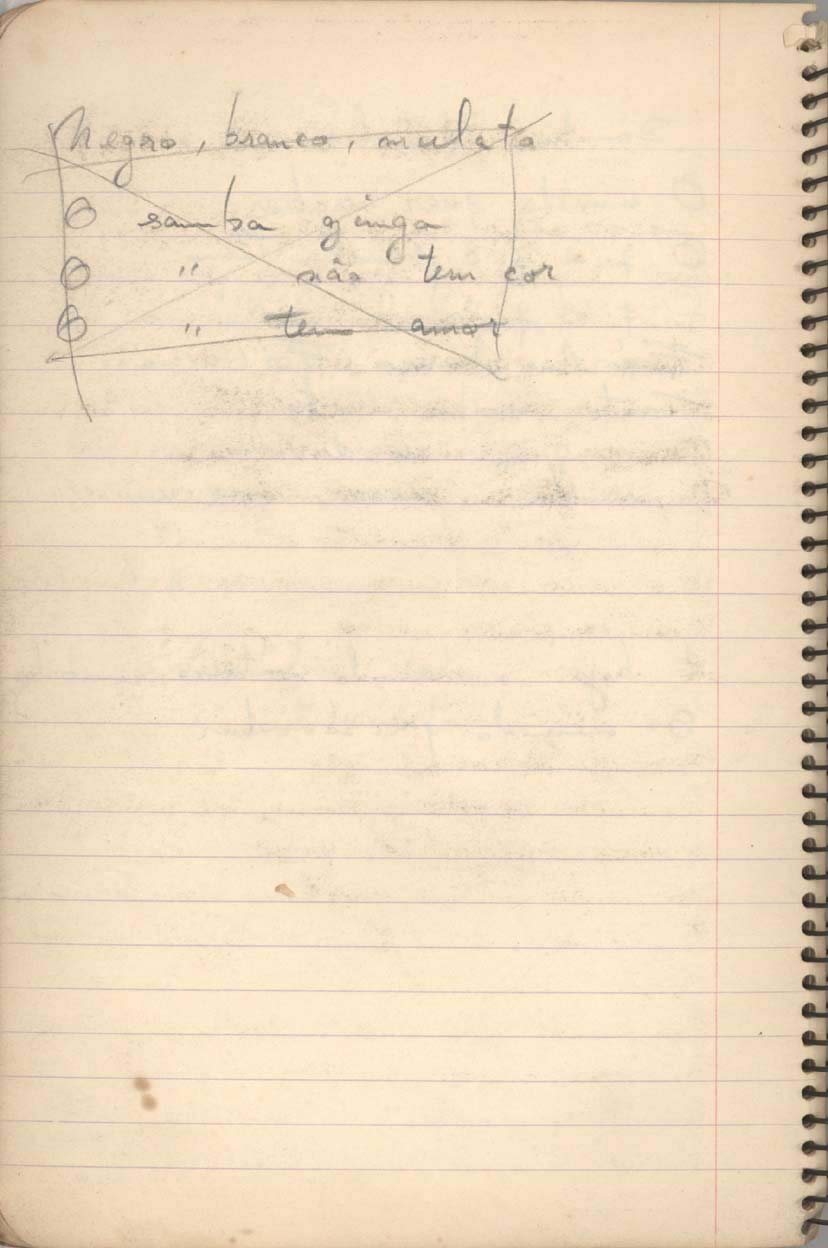 Negro, branco, mulato
O samba ginga
O " não tem cor
O " tem amor